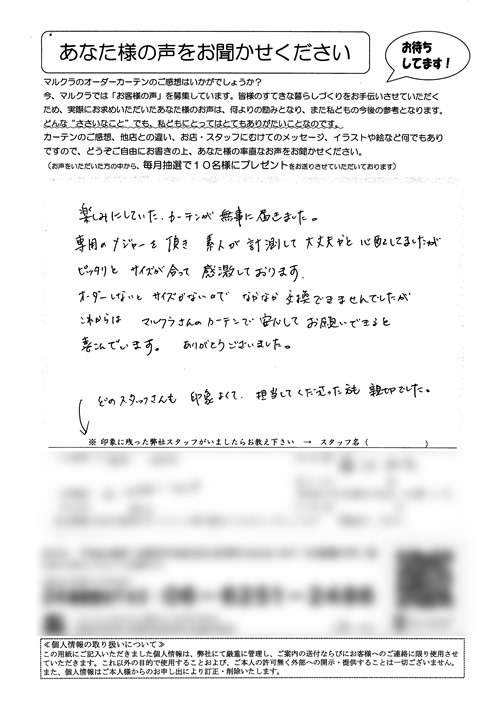 あなた様の声をお聞かせください
お待ち
してます！
マルクラのオーダーカーテンのご感想はいかがでしょうか？
今、マルクラでは「お客様の声」を募集しています。皆様のすてきな暮らしづくりをお手伝いさせていただく
ため、実際にお求めいただいたあなた様のお声は、何よりの励みとなり、また私どもの今後の参考となります。
どんな“ささいなこと”でも、私どもにとってはとてもありがたいことなのです。
カーテンのご感想、他店との違い、お店・スタッフにむけてのメッセージ、イラストや絵など何でもあり
ですので、どうぞご自由にお書きの上、あなた様の率直なお声をお聞かせください。
（お声をいただいた方の中から、毎月抽選で１０名様にプレゼントをお送りさせていただいております）
楽しみにしていた、カーテンが無事に届きました。
専用のメジャーを頂き 素人が計測して大丈夫かと心配してましたが
ピッタリとサイズが合って感激しております。
オーダーしないとサイズがないのでなかなか交換できませんでしたが
これからは マルクラさんのカーテンで安心してお願いできると
喜んでいます。 ありがとうございました。
どのスタッフさんも 印象よくて、担当してくださった方も 親切でした。
※ 印象に残った弊社スタッフがいましたらお教え下さい → スタッフ名（ ）
06-6251-2486
≪個人情報の取り扱いについて≫
この用紙にご記入いただきました個人情報は、弊社にて厳重に管理し、ご案内の送付ならびにお客様へのご連絡に限り使用させ
ていただきます。これ以外の目的で使用することおよび、ご本人の許可無く外部への開示・提供することは一切ございません。
また、個人情報はご本人様からのお申し出により訂正・削除いたします。